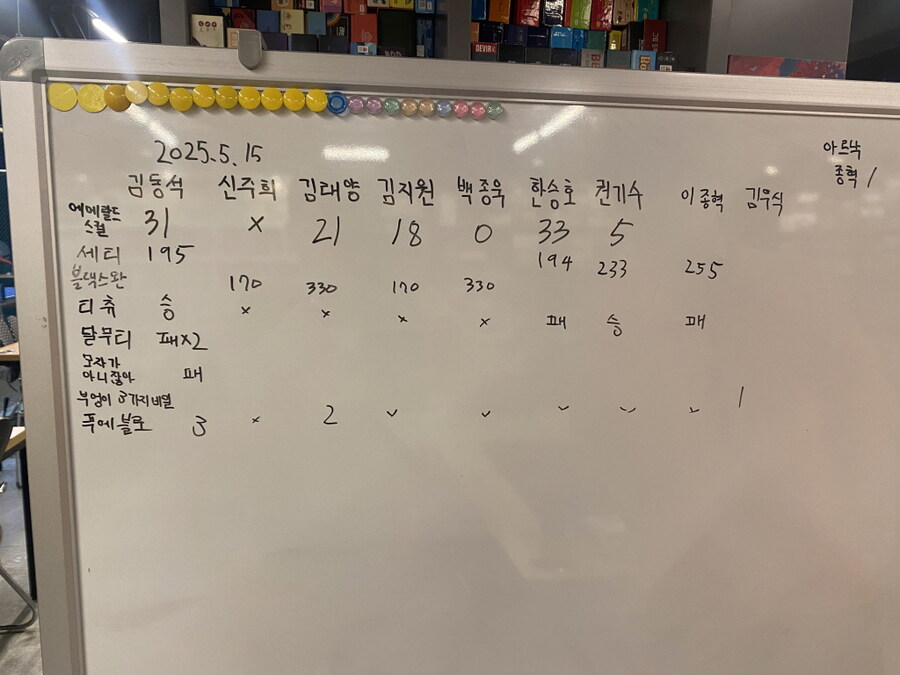 2025.5.15
아르낙
종혁 1
김동석 신주희 김태양 김지원 백종우 한승호 권기수 이종혁 김우식
에메랄드
스컬 31 x 21 18 0 33 5
세티 195 194 233 255
블랙스완 170 330 170 330
티츄 승 x x x x 패 승 패
달무티 패x2
모자가
아니잖아 패
부엉이 3가지 비밀 1
푸에블로 3 x 2
DEVIR